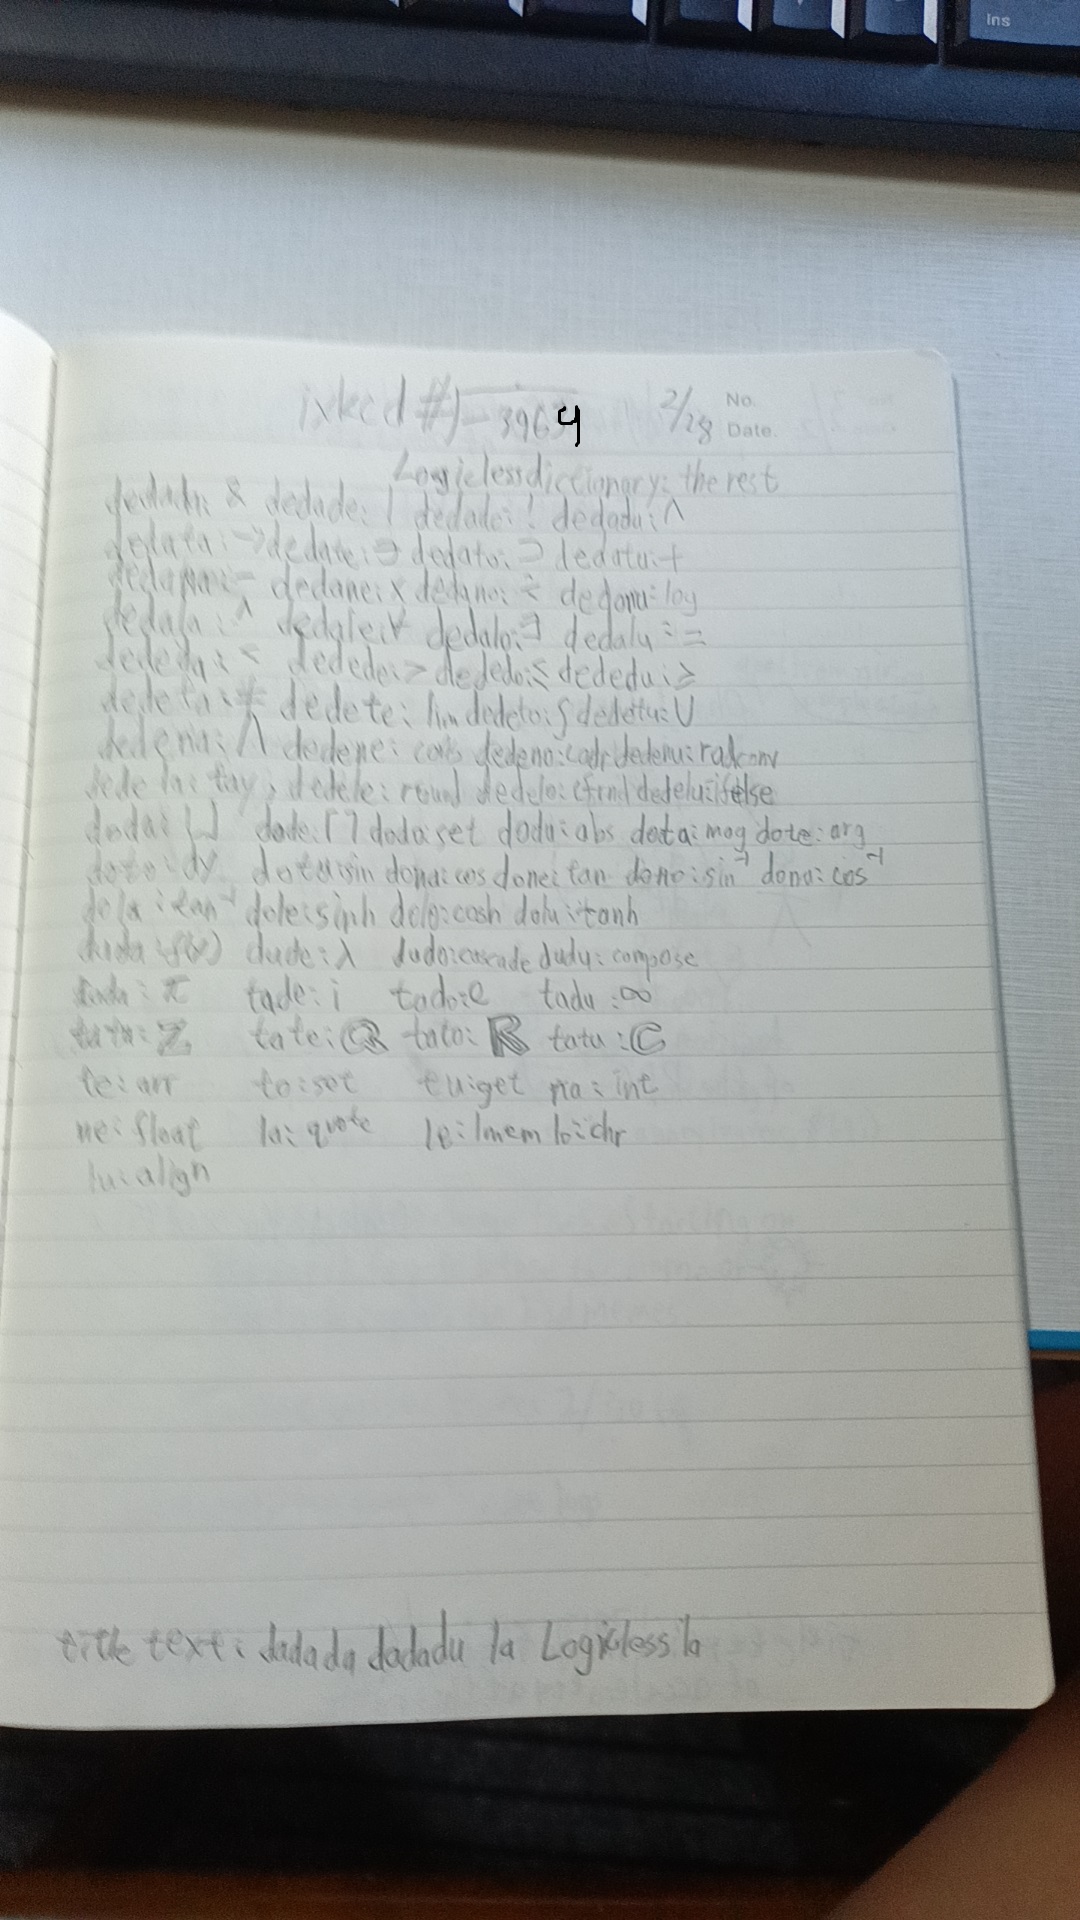 Ins
ixkcd #√-3964 2/28 No. Date.
Logicless dictionary: the rest
dedada: & dedade: | dedado: ! dedadu: ∧
dedata: → dedate: ∋ dedato: ⊃ dedatu: +
dedana: - dedane: × dedano: ÷ dedanu: log
dedala: ^ dedale: ∀ dedalo: ∃ dedalu: =
dededa: < dedede: > dededo: ≤ dededu: ≥
dedeta: ≠ dedete: lim dedeto: ∫ dedetu: U
dedena: Λ dedene: cons dedeno: cadr dedenu: radconv
dedela: tay, dedele: round dedelo: dedelu: ifelse
doda: ⌊⌋ dode: ⌈⌉ dodo: set dodu: abs dota: mag dote: arg
doto: dy dotu: sin dona: cos done: tan dono: sin⁻¹ donu: cos⁻¹
dola: tan⁻¹ dole: sinh dolo: cosh dolu: tanh
duda: f(x) dude: λ dudo: cascade dudu: compose
tada: π tade: i tado: e tadu: ∞
tata: ℤ tate: ℚ tato: ℝ tatu: ℂ
te: arr to: set tu: get na: int
ne: float la: quote le: lmem lo: chr
lu: align
title text: dadada dadadu la Logicless la